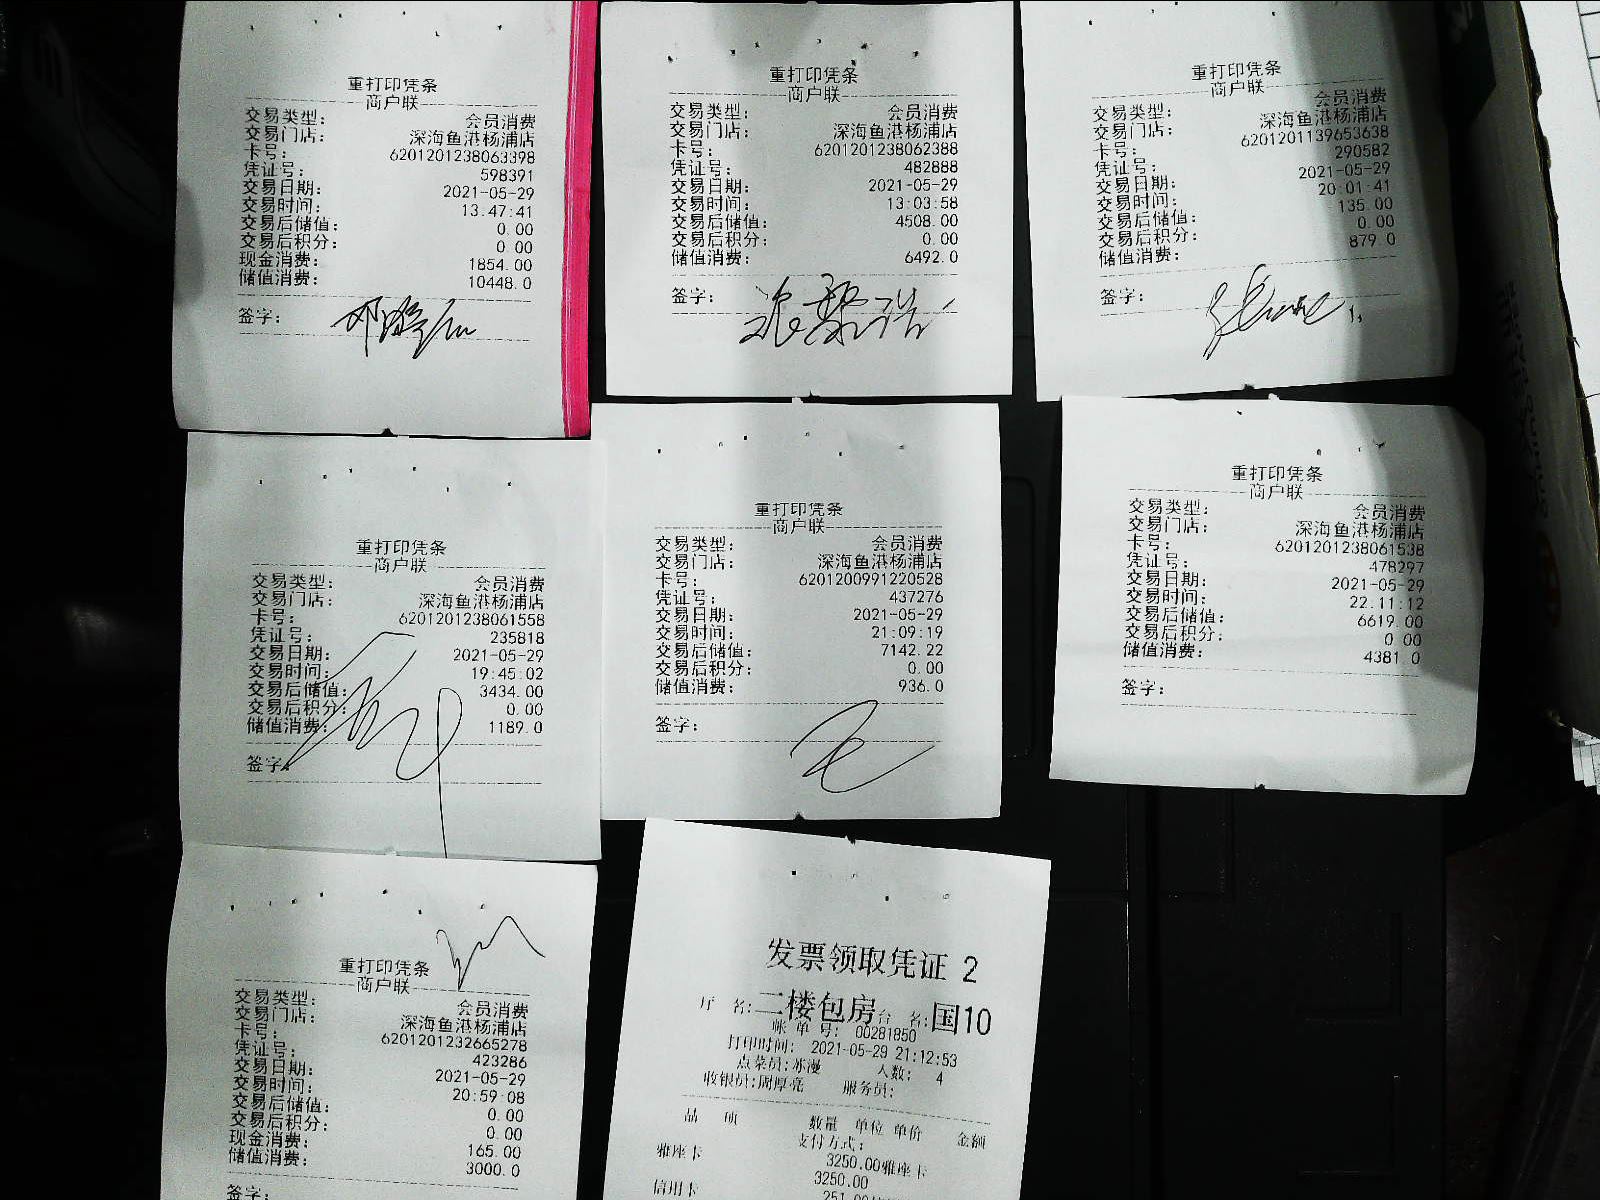 重打印凭条
商户联
交易类型： 会员消费
交易门店： 深海鱼港杨浦店
卡号： 6201201238063398
凭证号： 598391
交易日期： 2021-05-29
交易时间： 13.47:41
交易后储值： 0.00
交易后积分： 0.00
现金消费： 1854.00
储值消费： 10448.0
签字：
重打印凭条
商户联
交易类型： 会员消费
交易门店： 深海鱼港杨浦店
卡号： 6201201238062388
凭证号： 482888
交易日期： 2021-05-29
交易时间： 13:03:58
交易后储值： 4508.00
交易后积分： 0.00
储值消费： 6492.0
签字：
重打印凭条
商户联
交易类型： 会员消费
交易门店： 深海鱼港杨浦店
卡号： 6201201139653638
凭证号： 290582
交易日期： 2021-05-29
交易时间： 20:01:41
交易后储值： 135.00
交易后积分： 0.00
储值消费： 879.0
签字：
重打印凭条
商户联
交易类型： 会员消费
交易门店： 深海鱼港杨浦店
卡号： 6201201238061558
凭证号： 235818
交易日期： 2021-05-29
交易时间： 19:45:02
交易后储值： 3434.00
交易后积分： 0.00
储值消费： 1189.0
签字：
重打印凭条
商户联
交易类型： 会员消费
交易门店： 深海鱼港杨浦店
卡号： 6201200991220528
凭证号： 437276
交易日期： 2021-05-29
交易时间： 21:09:19
交易后储值： 7142.22
交易后积分： 0.00
储值消费： 936.0
签字：
重打印凭条
商户联
交易类型： 会员消费
交易门店： 深海鱼港杨浦店
卡号： 6201201238061538
凭证号： 478297
交易日期： 2021-05-29
交易时间： 22.11:12
交易后储值： 6619.00
交易后积分： 0.00
储值消费： 4381.0
签字：
重打印凭条
商户联
交易类型： 会员消费
交易门店： 深海鱼港杨浦店
卡号： 6201201232665278
凭证号： 423286
交易日期： 2021-05-29
交易时间： 20:59:08
交易后储值： 0.00
交易后积分： 0.00
现金消费： 165.00
储值消费： 3000.0
签字：
发票领取凭证 2
厅 名：二楼包房 台 名：国10
帐单号： 00281850
打印时间： 2021-05-29 21:12:53
点菜员：苏漫 人数： 4
收银员：周厚亮 服务员：
品 项 数量 单位 单价 金额
支付方式：
雅座卡 3250.00雅座卡
3250.00
信用卡 251.00